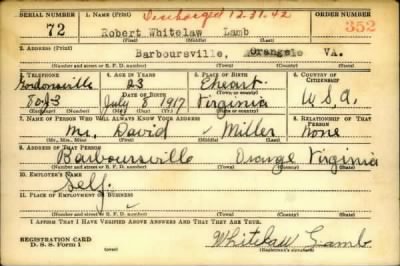 SERIAL NUMBER 1. NAME (Print) Discharged 12.31.42 ORDER NUMBER
72 Robert Whitelaw Lamb 352
(First) (Middle) (Last)
2. ADDRESS (Print)
Barboursville, Orange VA.
(Number and street or R. F. D. number) (Town) (County) (State)
3. TELEPHONE 4. AGE IN YEARS 5. PLACE OF BIRTH 6. COUNTRY OF CITIZENSHIP
Gordonsville 23 Eheart U.S.A.
DATE OF BIRTH
July 8 1917 Virginia
7. NAME OF PERSON WHO WILL ALWAYS KNOW YOUR ADDRESS 8. RELATIONSHIP OF THAT PERSON
Mr. David - Miller None
(Mr., Mrs., Miss) (First) (Middle) (Last)
9. ADDRESS OF THAT PERSON
Barboursville Orange Virginia
(Number and street or R. F. D. number) (Town) (County) (State)
10. EMPLOYER'S NAME
Self.
11. PLACE OF EMPLOYMENT OR BUSINESS
(Number and street or R. F. D. number) (Town) (County) (State)
I AFFIRM THAT I HAVE VERIFIED ABOVE ANSWERS AND THAT THEY ARE TRUE.
REGISTRATION CARD
D. S. S. Form 1 Whitelaw Lamb
(Registrant's signature)